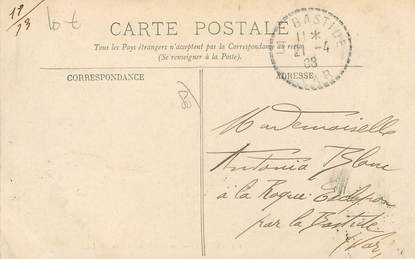 CARTE POSTALE
Tous les Pays étrangers n'acceptent pas la Correspondance au recto
(Se renseigner à la Poste).
CORRESPONDANCE
ADRESSE
BASTIDE
21 -4
08
VAR
Mademoiselle
Antonia Blanc
à la Roque Esclapon
par la Bastide
Var